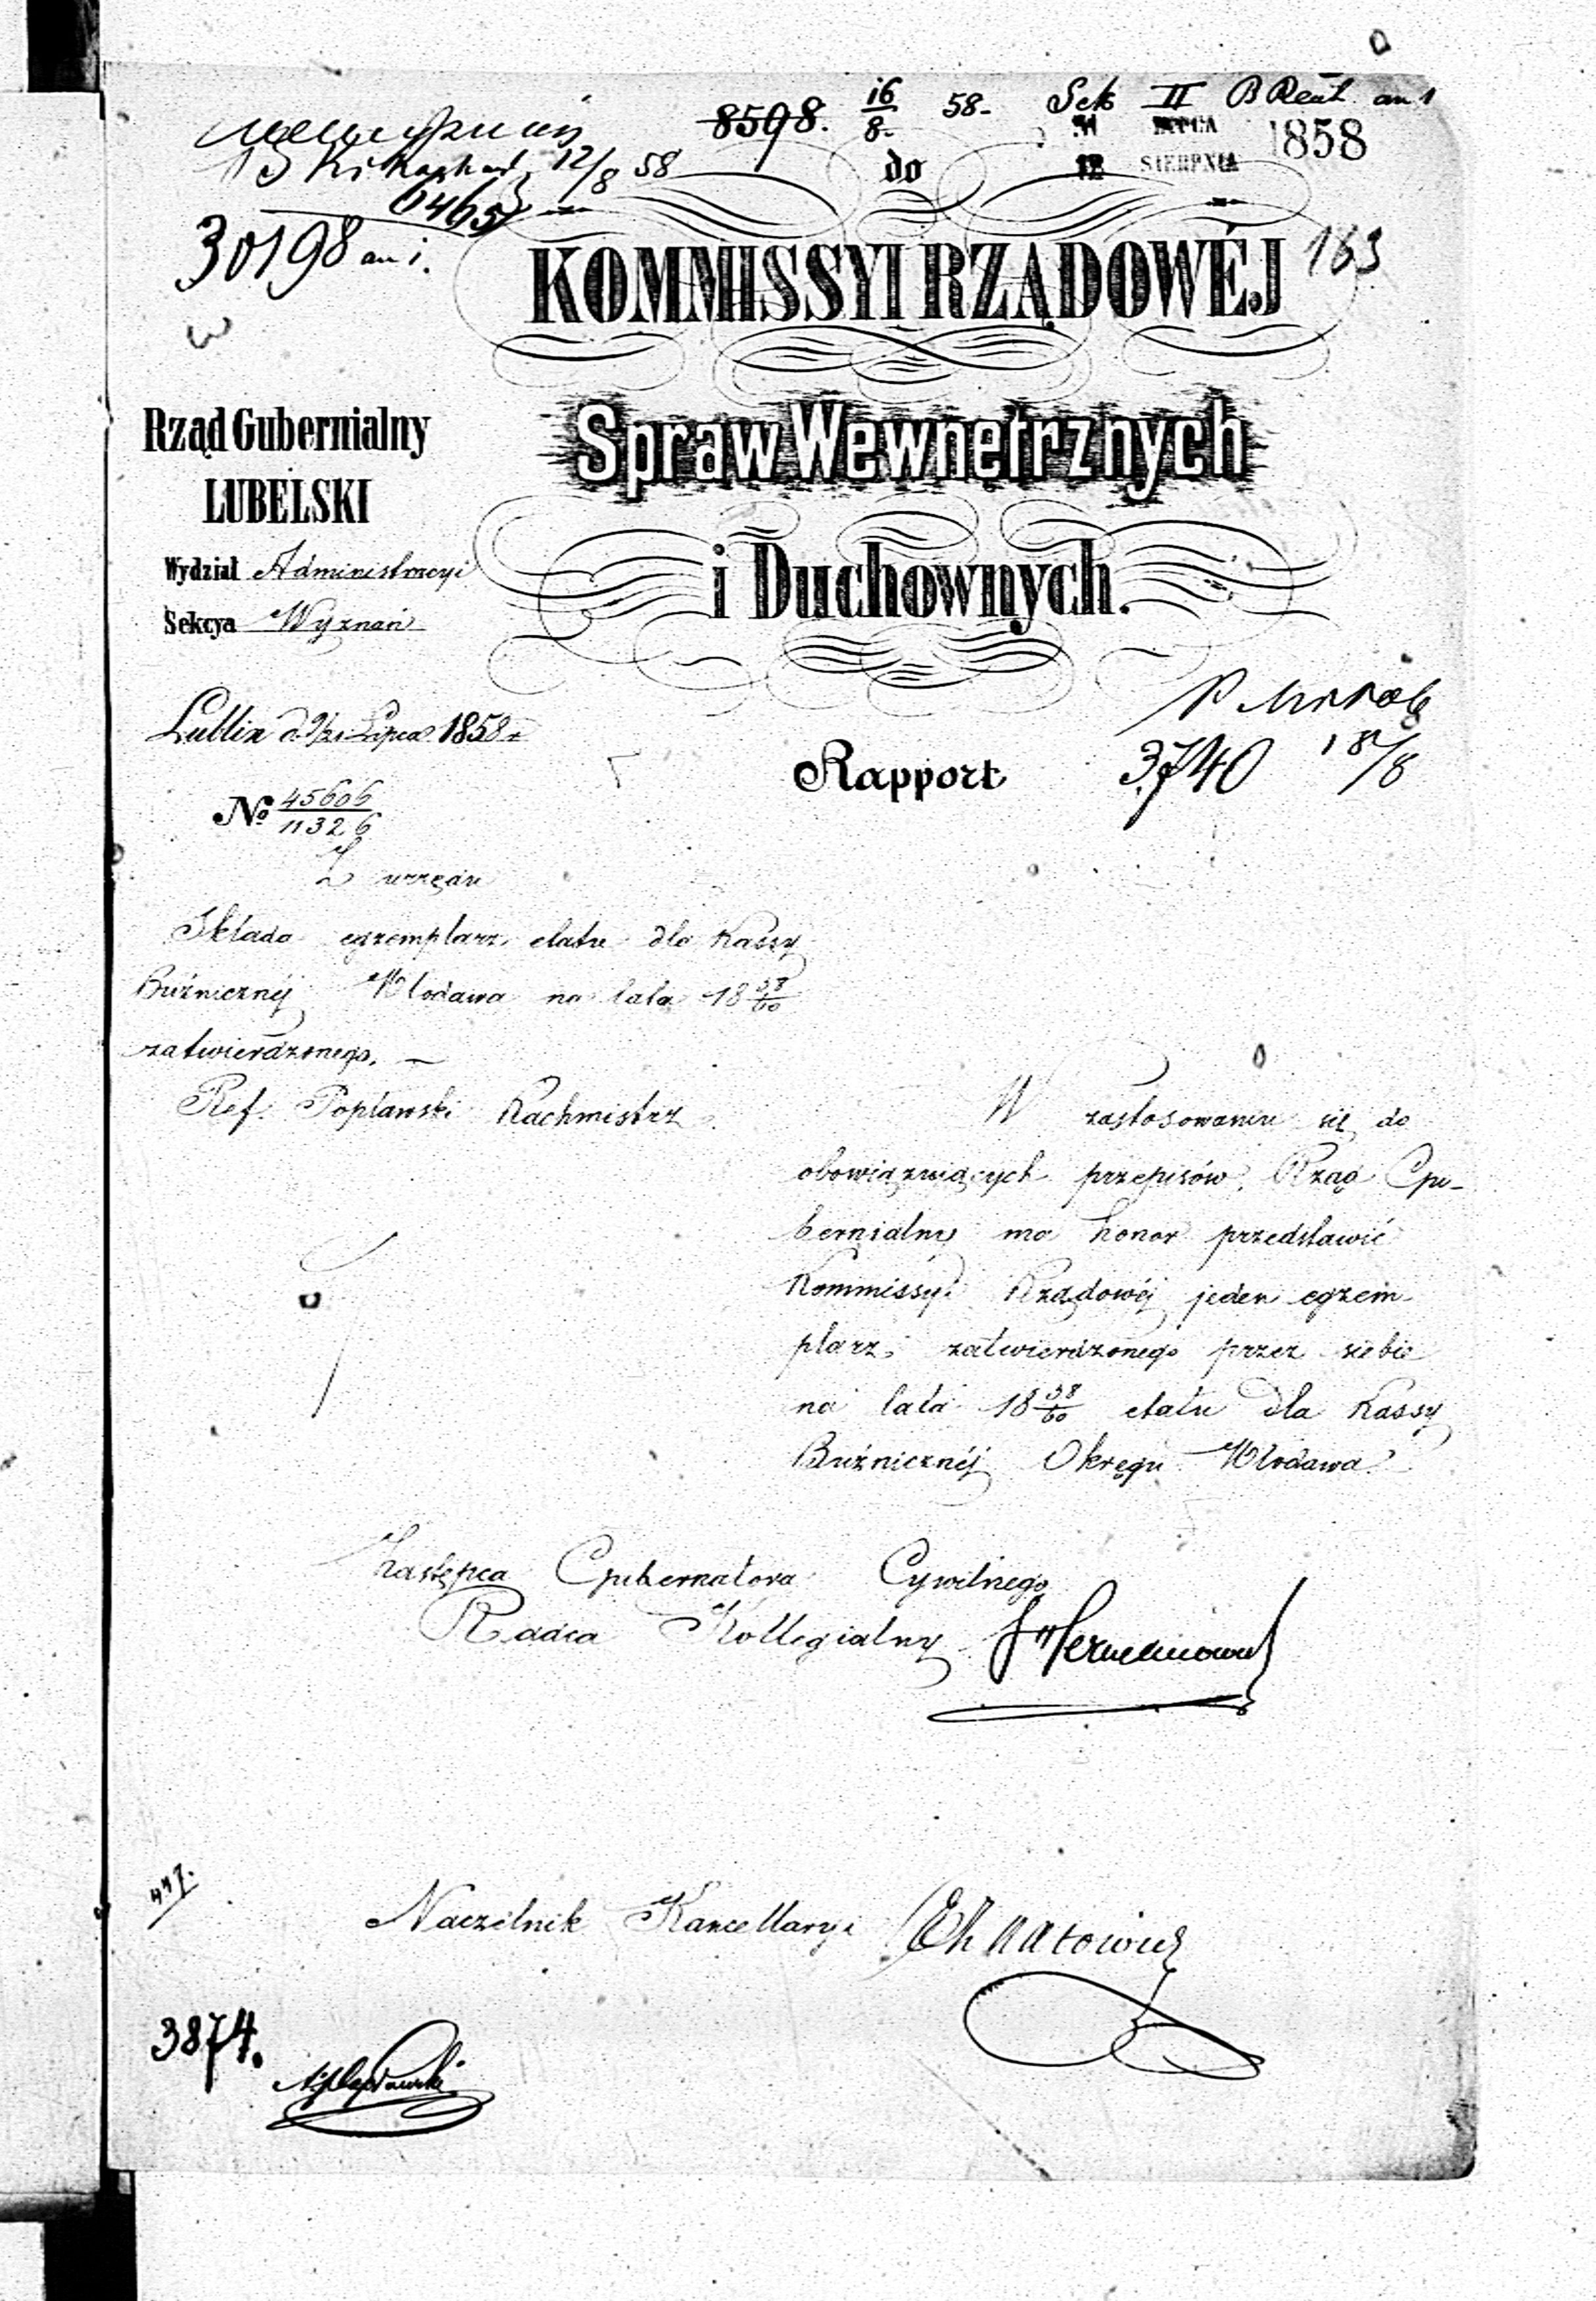 8598. 16/8. 58. Sek II
12/8 58
31 LIPCA
do 12 SIERPNIA 1858
6465
30198 an 1.
163
KOMMISSYI RZĄDOWÉJ
Spraw Wewnętrznych
i Duchownych.
Rząd Gubernialny
LUBELSKI
Wydział Administracyi
Sekcya Wyznań
Lublin d. 9/21 Lipca 1858 r.
Rapport
3740 18/8
No 45606/11326
Z urzędu
Składa egzemplarz etatu dla Kassy
Bużnicznéj Włodawa na lata 18 58/60
zatwierdzonego. —
Ref. Popławski Rachmistrz
W zastosowaniu się do
obowiązujących przepisów, Rząd Gu-
bernialny ma honor przedstawić
Kommissyi Rządowéj jeden egzem-
plarz, zatwierdzonego przez siebie
na lata 18 58/60 etatu dla Kassy
Bużnicznéj Okręgu Włodawa.
Zastępca Gubernatora Cywilnego
Radca Kollegialny
447.
Naczelnik Kancellaryi
3874.